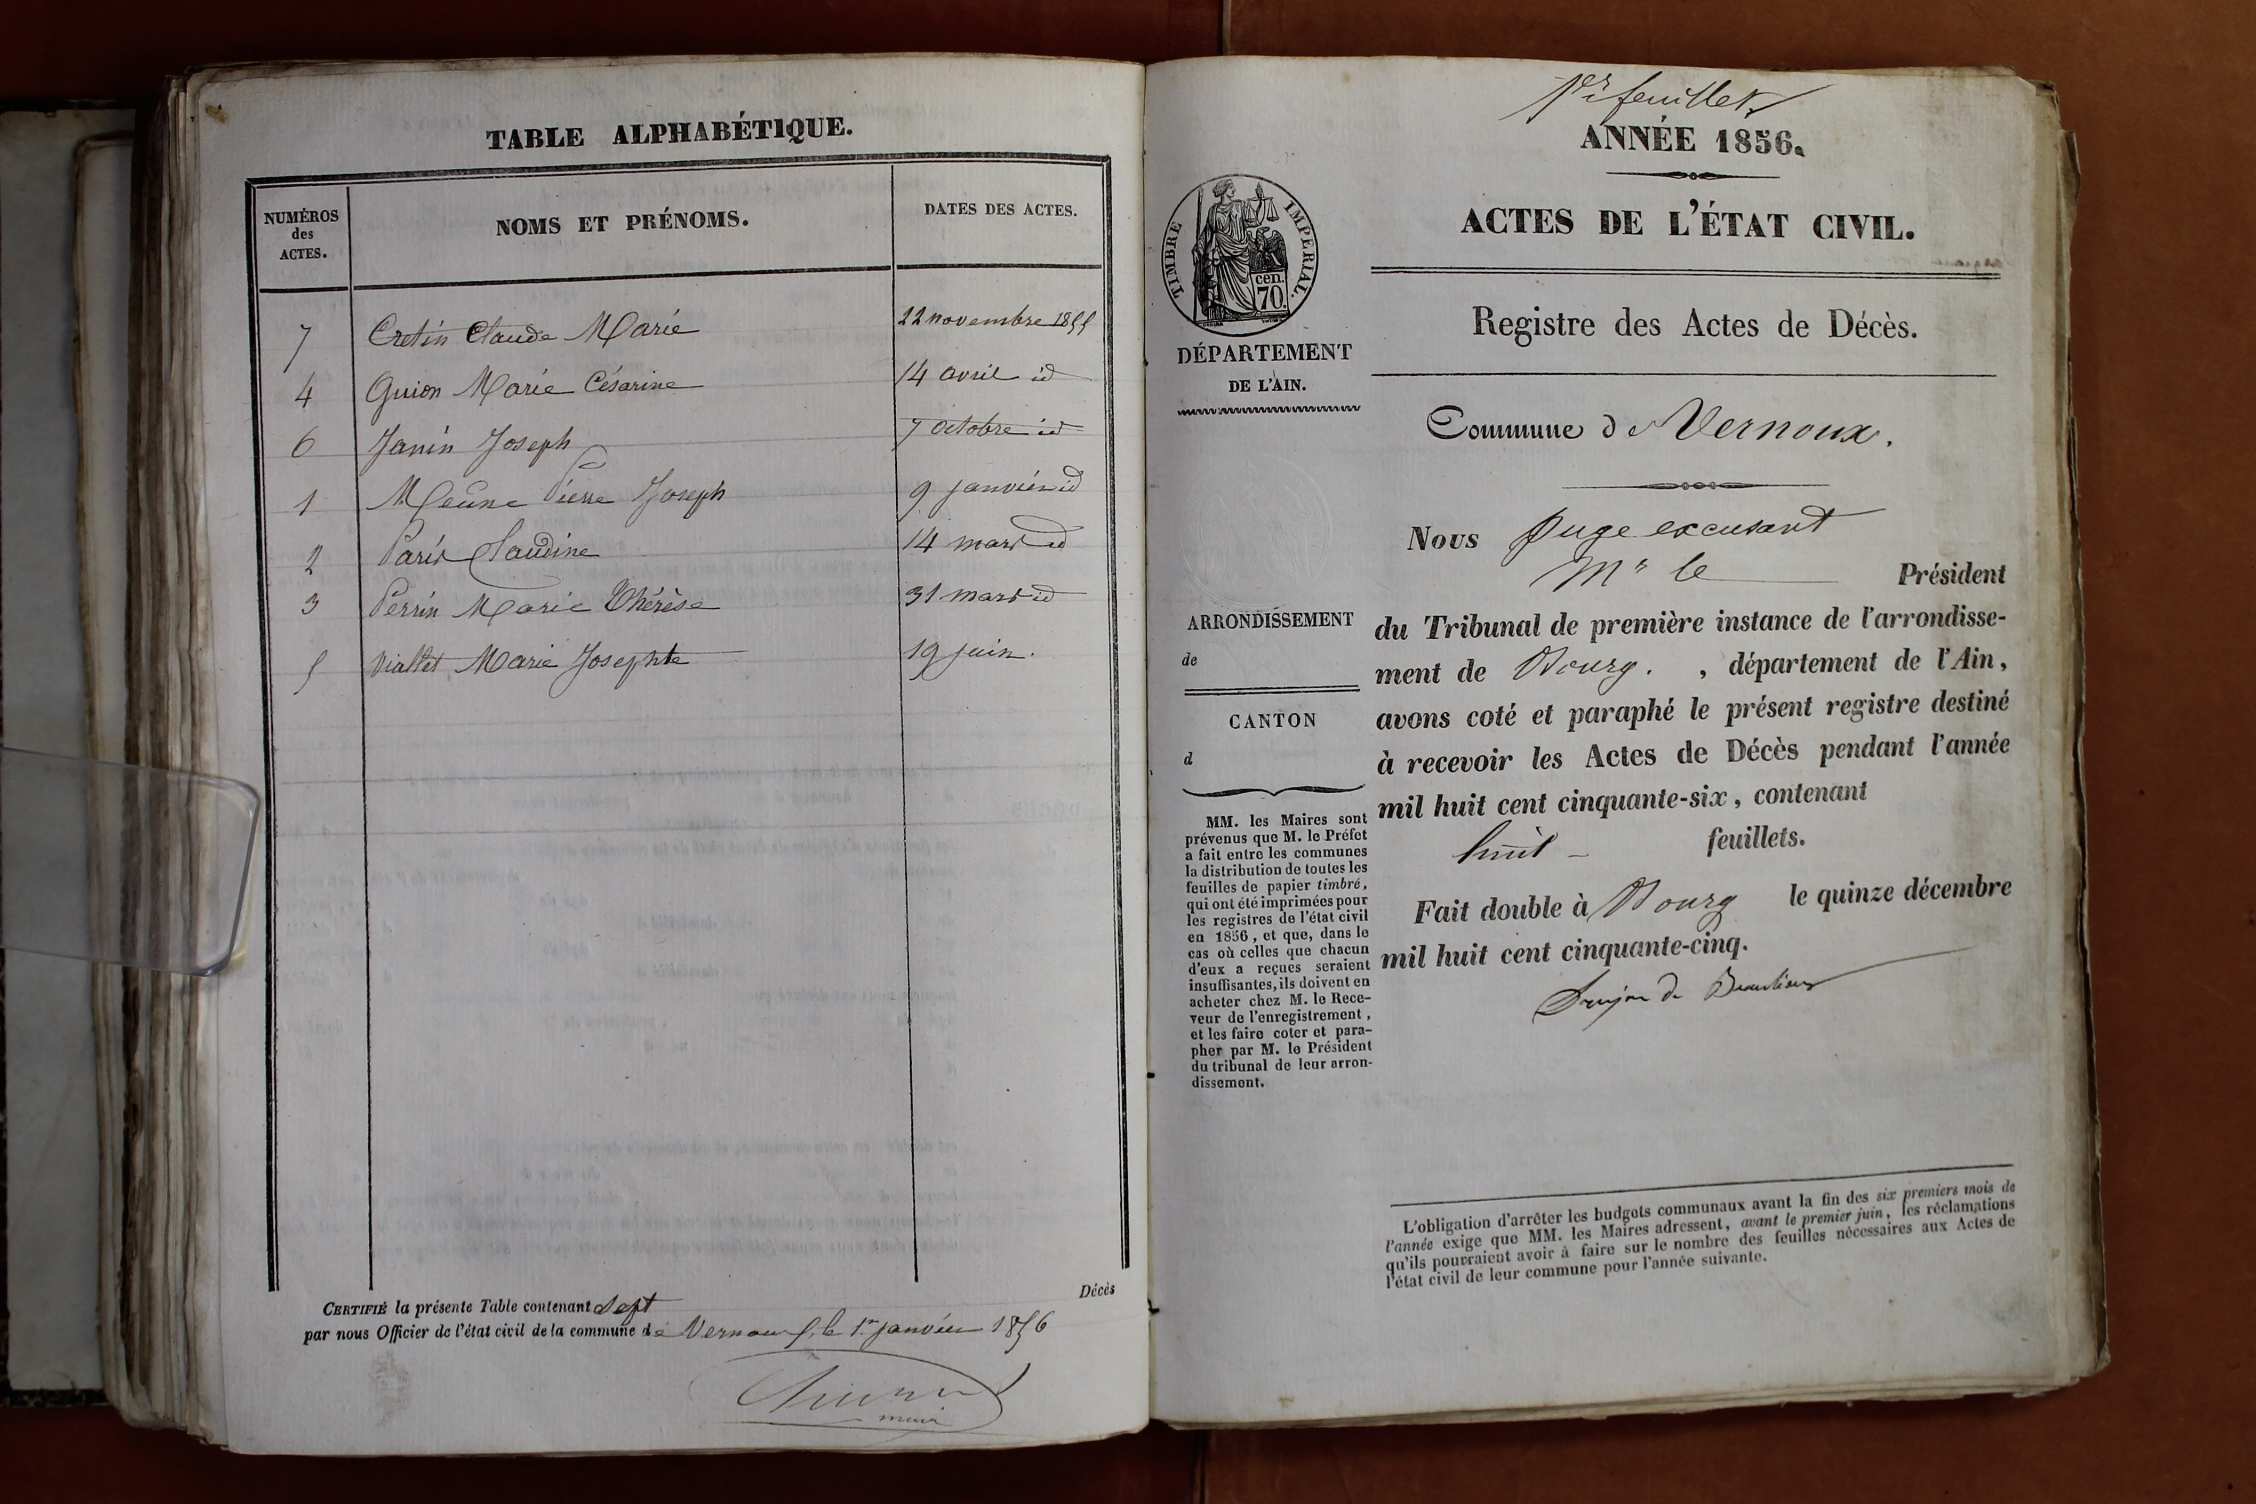 TABLE ALPHABÉTIQUE.
NUMÉROS
des
ACTES.
NOMS ET PRÉNOMS.
DATES DES ACTES.
7 Cretin Claude Marie 22 novembre 1855
4 Guion Marie Césarine 14 avril id
6 Janin Joseph 7 octobre id
1 Meune Pierre Joseph 9 janvier id
2 Paris Claudine 14 mars id
3 Perrin Marie Thérèse 31 mars id
5 Viallet Marie Josephte 19 juin.
CERTIFIÉ la présente Table contenant Sept Décès
par nous Officier de l'état civil de la commune de Vernoux, le 1er janvier 1856
maire
1er feuillet
ANNÉE 1856.
ACTES DE L'ÉTAT CIVIL.
Registre des Actes de Décès.
TIMBRE IMPÉRIAL.
cen.
70.
DÉPARTEMENT
DE L'AIN.
Commune de Vernoux.
Nous Juge excusant
Mr le Président
du Tribunal de première instance de l'arrondisse-
ment de Bourg. , département de l'Ain,
avons coté et paraphé le présent registre destiné
à recevoir les Actes de Décès pendant l'année
mil huit cent cinquante-six, contenant
huit feuillets.
Fait double à Bourg le quinze décembre
mil huit cent cinquante-cinq.
ARRONDISSEMENT
de
CANTON
d
MM. les Maires sont
prévenus que M. le Préfet
a fait entre les communes
la distribution de toutes les
feuilles de papier timbré,
qui ont été imprimées pour
les registres de l'état civil
en 1856, et que, dans le
cas où celles que chacun
d'eux a reçues seraient
insuffisantes, ils doivent en
acheter chez M. le Rece-
veur de l'enregistrement,
et les faire coter et para-
pher par M. le Président
du tribunal de leur arron-
dissement.
L'obligation d'arrêter les budgets communaux avant la fin des six premiers mois de
l'année exige que MM. les Maires adressent, avant le premier juin, les réclamations
qu'ils pourraient avoir à faire sur le nombre des feuilles nécessaires aux Actes de
l'état civil de leur commune pour l'année suivante.